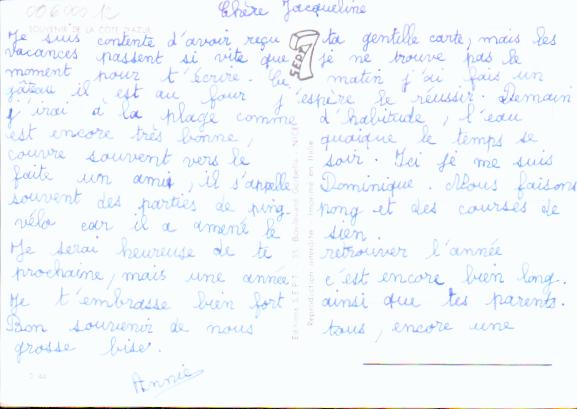 006000 12
Chère Jacqueline
SOUVENIR DE LA COTE D'AZUR
Je suis contente d'avoir reçu ta gentille carte, mais les
vacances passent si vite que je ne trouve pas le
moment pour t'écrire. Ce matin j'ai fait un
gâteau il est au four j'espère le réussir. Demain
j'irai à la plage comme d'habitude, l'eau
est encore très bonne, quoique le temps se
couvre souvent vers le soir. Ici je me suis
faite un ami, il s'appelle Dominique. Nous faisons
souvent des parties de ping pong et des courses de
vélo car il a amené le sien.
Je serai heureuse de te retrouver l'année
prochaine, mais une année c'est encore bien long.
Je t'embrasse bien fort ainsi que tes parents.
Bon souvenir de nous tous, encore une
grosse bise.
Annie
SEPT
Reproduction interdite